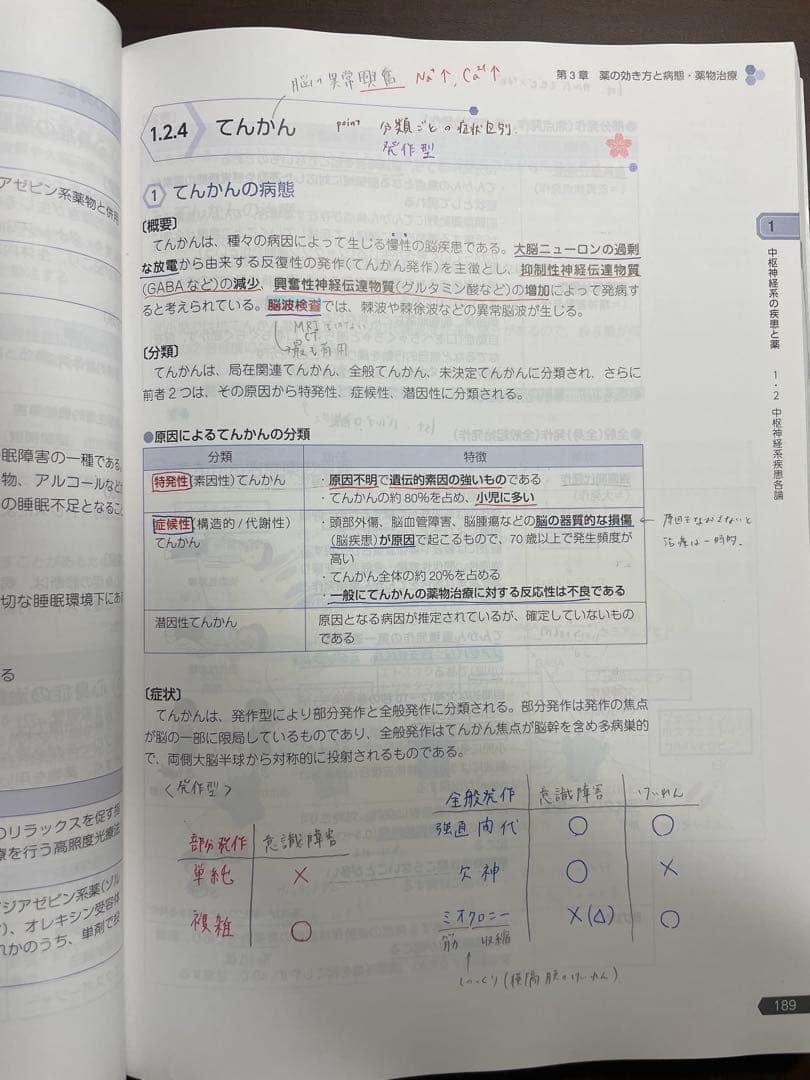 第3章 薬の効き方と病態・薬物治療
脳の異常興奮 Na⁺↑, Ca²⁺↑
1.2.4 てんかん
point 分類ごとの症状区別.
発作型
1 てんかんの病態
〔概要〕
てんかんは、種々の病因によって生じる慢性の脳疾患である。大脳ニューロンの過剰
な放電から由来する反復性の発作(てんかん発作)を主徴とし、抑制性神経伝達物質
(GABAなど)の減少、興奮性神経伝達物質(グルタミン酸など)の増加によって発病す
ると考えられている。脳波検査では、棘波や棘徐波などの異常脳波が生じる。
MRI
CT
最も有用
〔分類〕
てんかんは、局在関連てんかん、全般てんかん、未決定てんかんに分類され、さらに
前者2つは、その原因から特発性、症候性、潜因性に分類される。
●原因によるてんかんの分類
分類 特徴
特発性(素因性)てんかん
・原因不明で遺伝的素因の強いものである
・てんかんの約80%を占め、小児に多い
症候性(構造的/代謝性)
てんかん
・頭部外傷、脳血管障害、脳腫瘍などの脳の器質的な損傷
(脳疾患)が原因で起こるもので、70歳以上で発生頻度が
高い
・てんかん全体の約20%を占める
・一般にてんかんの薬物治療に対する反応性は不良である
原因をなおさないと
治療は一時的.
潜因性てんかん
原因となる病因が推定されているが、確定していないもの
である
〔症状〕
てんかんは、発作型により部分発作と全般発作に分類される。部分発作は発作の焦点
が脳の一部に限局しているものであり、全般発作はてんかん焦点が脳幹を含め多病巣的
で、両側大脳半球から対称的に投射されるものである。
<発作型>
部分発作 意識障害
単純 ×
複雑 ○
全般発作 意識障害 けいれん
強直間代 ○ ○
欠神 ○ ×
ミオクロニー ×(△) ○
筋 収縮
しゃっくり(横隔膜のけいれん)
1
中枢神経系の疾患と薬
1・2 中枢神経系疾患各論
189
アゼピン系薬物と併用
眠障害の一種である
物、アルコールなど
の睡眠不足となること
切な睡眠環境下にあ
る
のリラックスを促す指
療を行う高照度光療法
ジアゼピン系薬(ゾル
)、オレキシン受容体
れかのうち、単剤で投